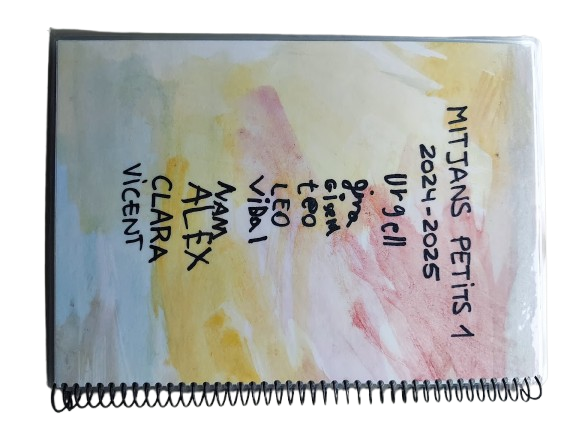 MITJANS PETITS 1
2024-2025
Urgell
gina
GiSEM
teo
LEO
ViDal
NAM
ALEX
CLARA
ViCENT